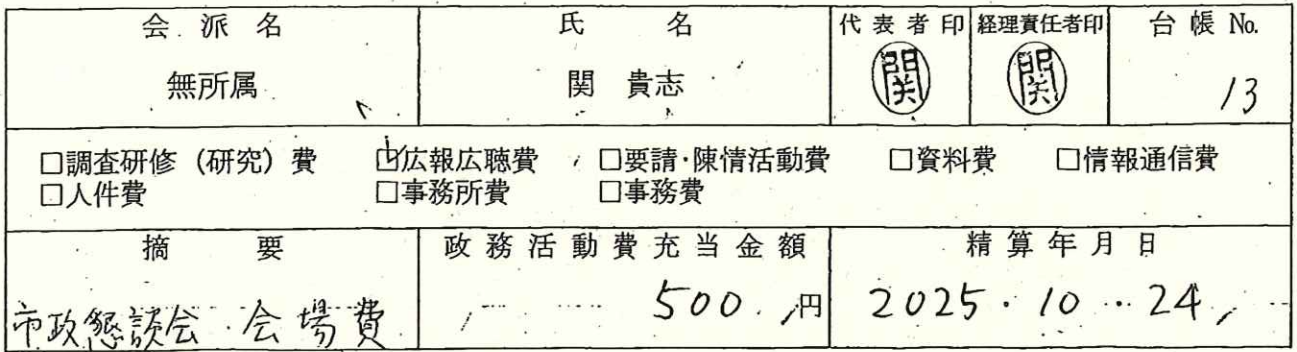 会派名 氏名 代表者印 経理責任者印 台帳No.
無所属 関 貴志 関 関 13
□調査研修（研究）費 ☑広報広聴費 □要請・陳情活動費 □資料費 □情報通信費
□人件費 □事務所費 □事務費
摘要 政務活動費充当金額 精算年月日
市政懇談会 会場費 500円 2025.10.24